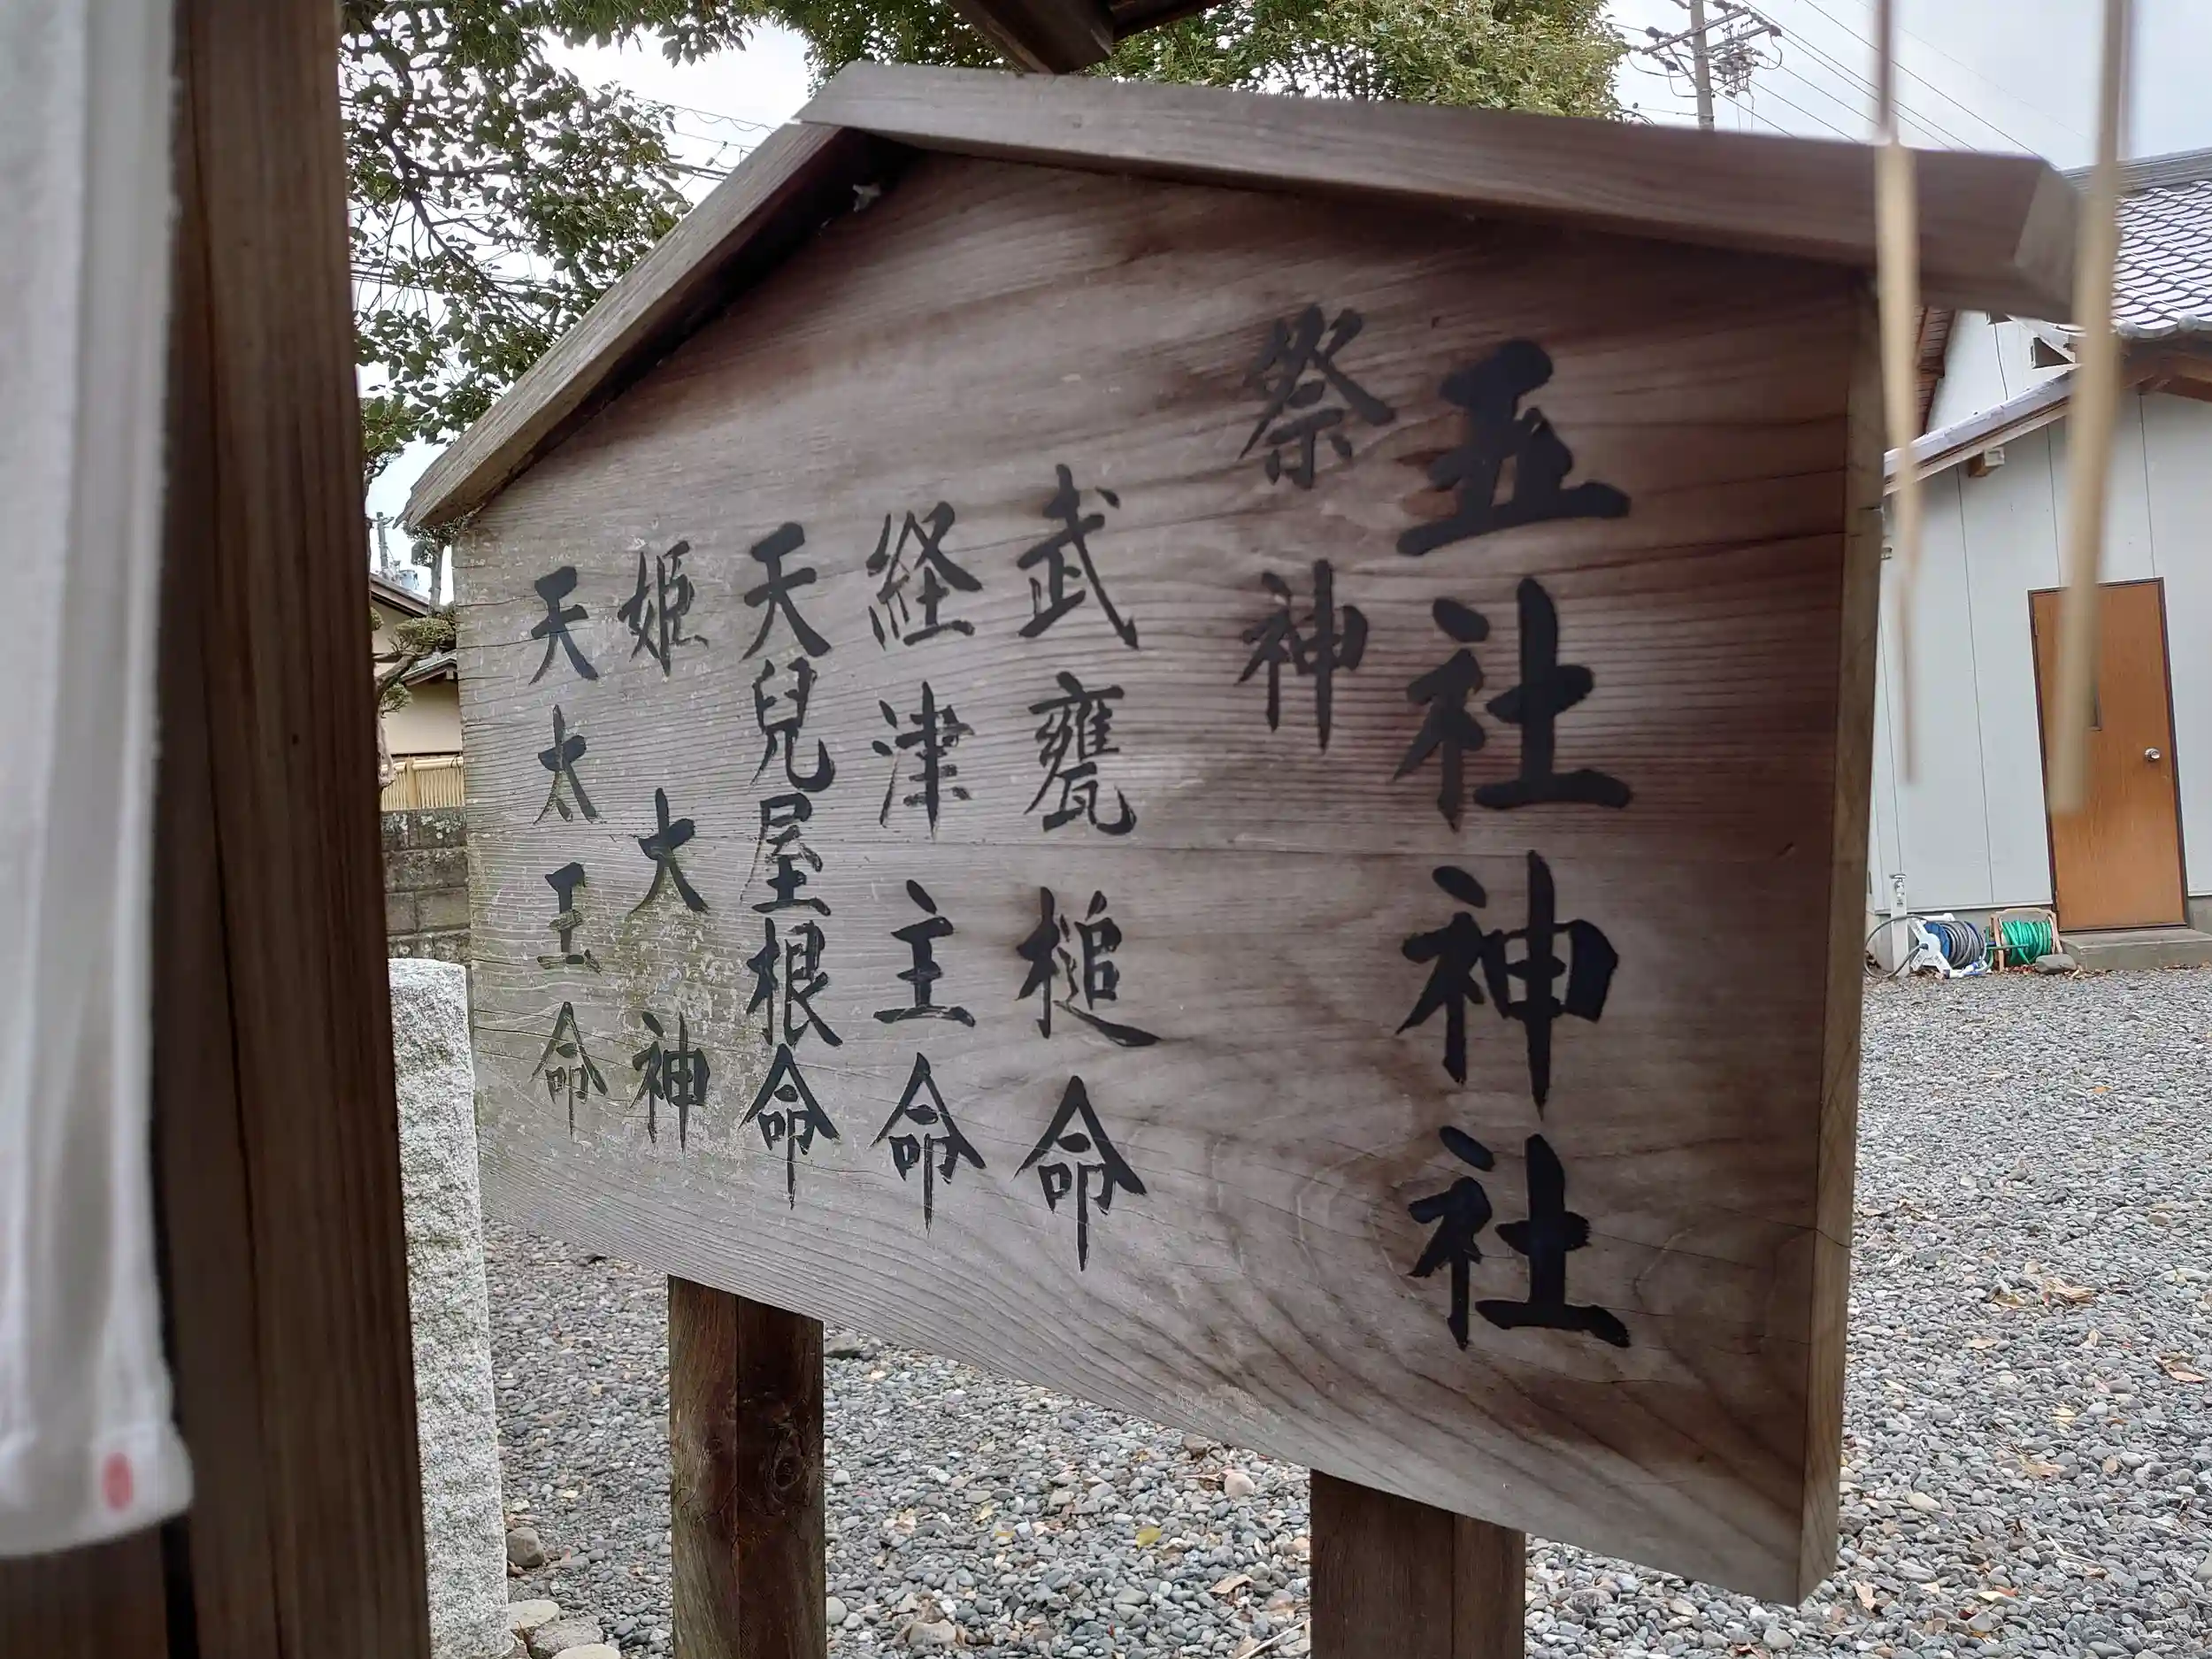 五社神社
祭神
武甕槌命
経津主命
天兒屋根命
姫大神
天太王命